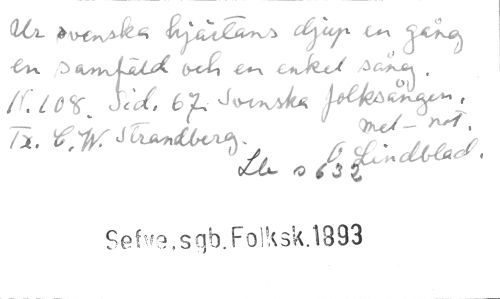 Ur svenska hjärtans djup en gång
en samfäld och en enkel sång.
N. 108. Sid. 67. Svenska folksången.
Tx. C. W. Strandberg. met- not.
O Lindblad.
Lb s 632
Sefve, sgb. Folksk. 1893